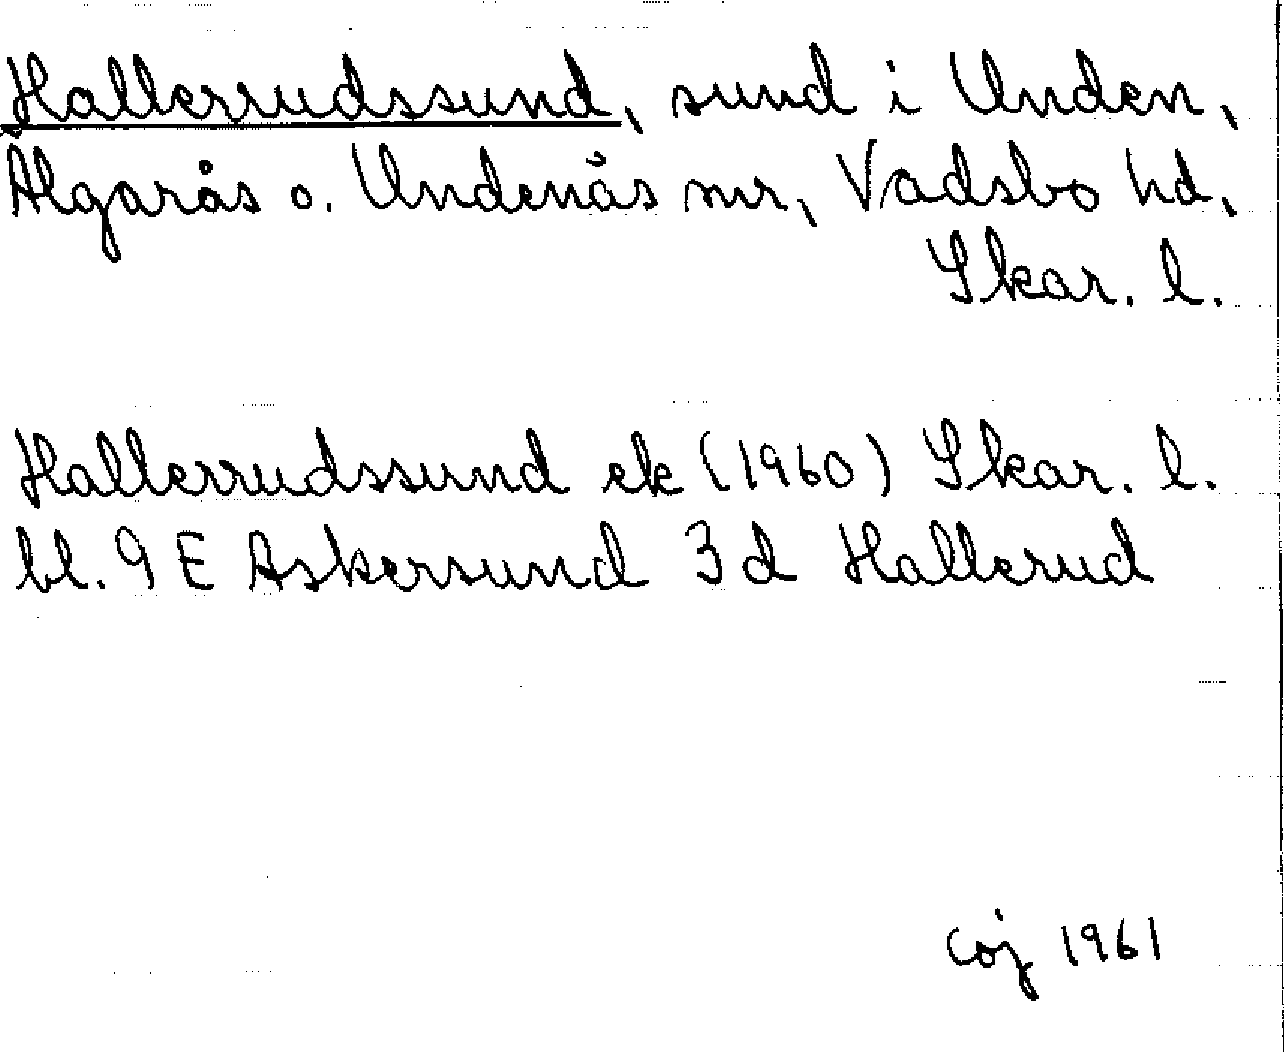 Hallerrudssund, sund i Unden,
Älgarås o. Undenäs snr, Vadsbo hd,
Skar. l.
Hallerrudssund ek (1960) Skar. l.
bl. 9 E Askersund 3 d Hallerud
coj 1961